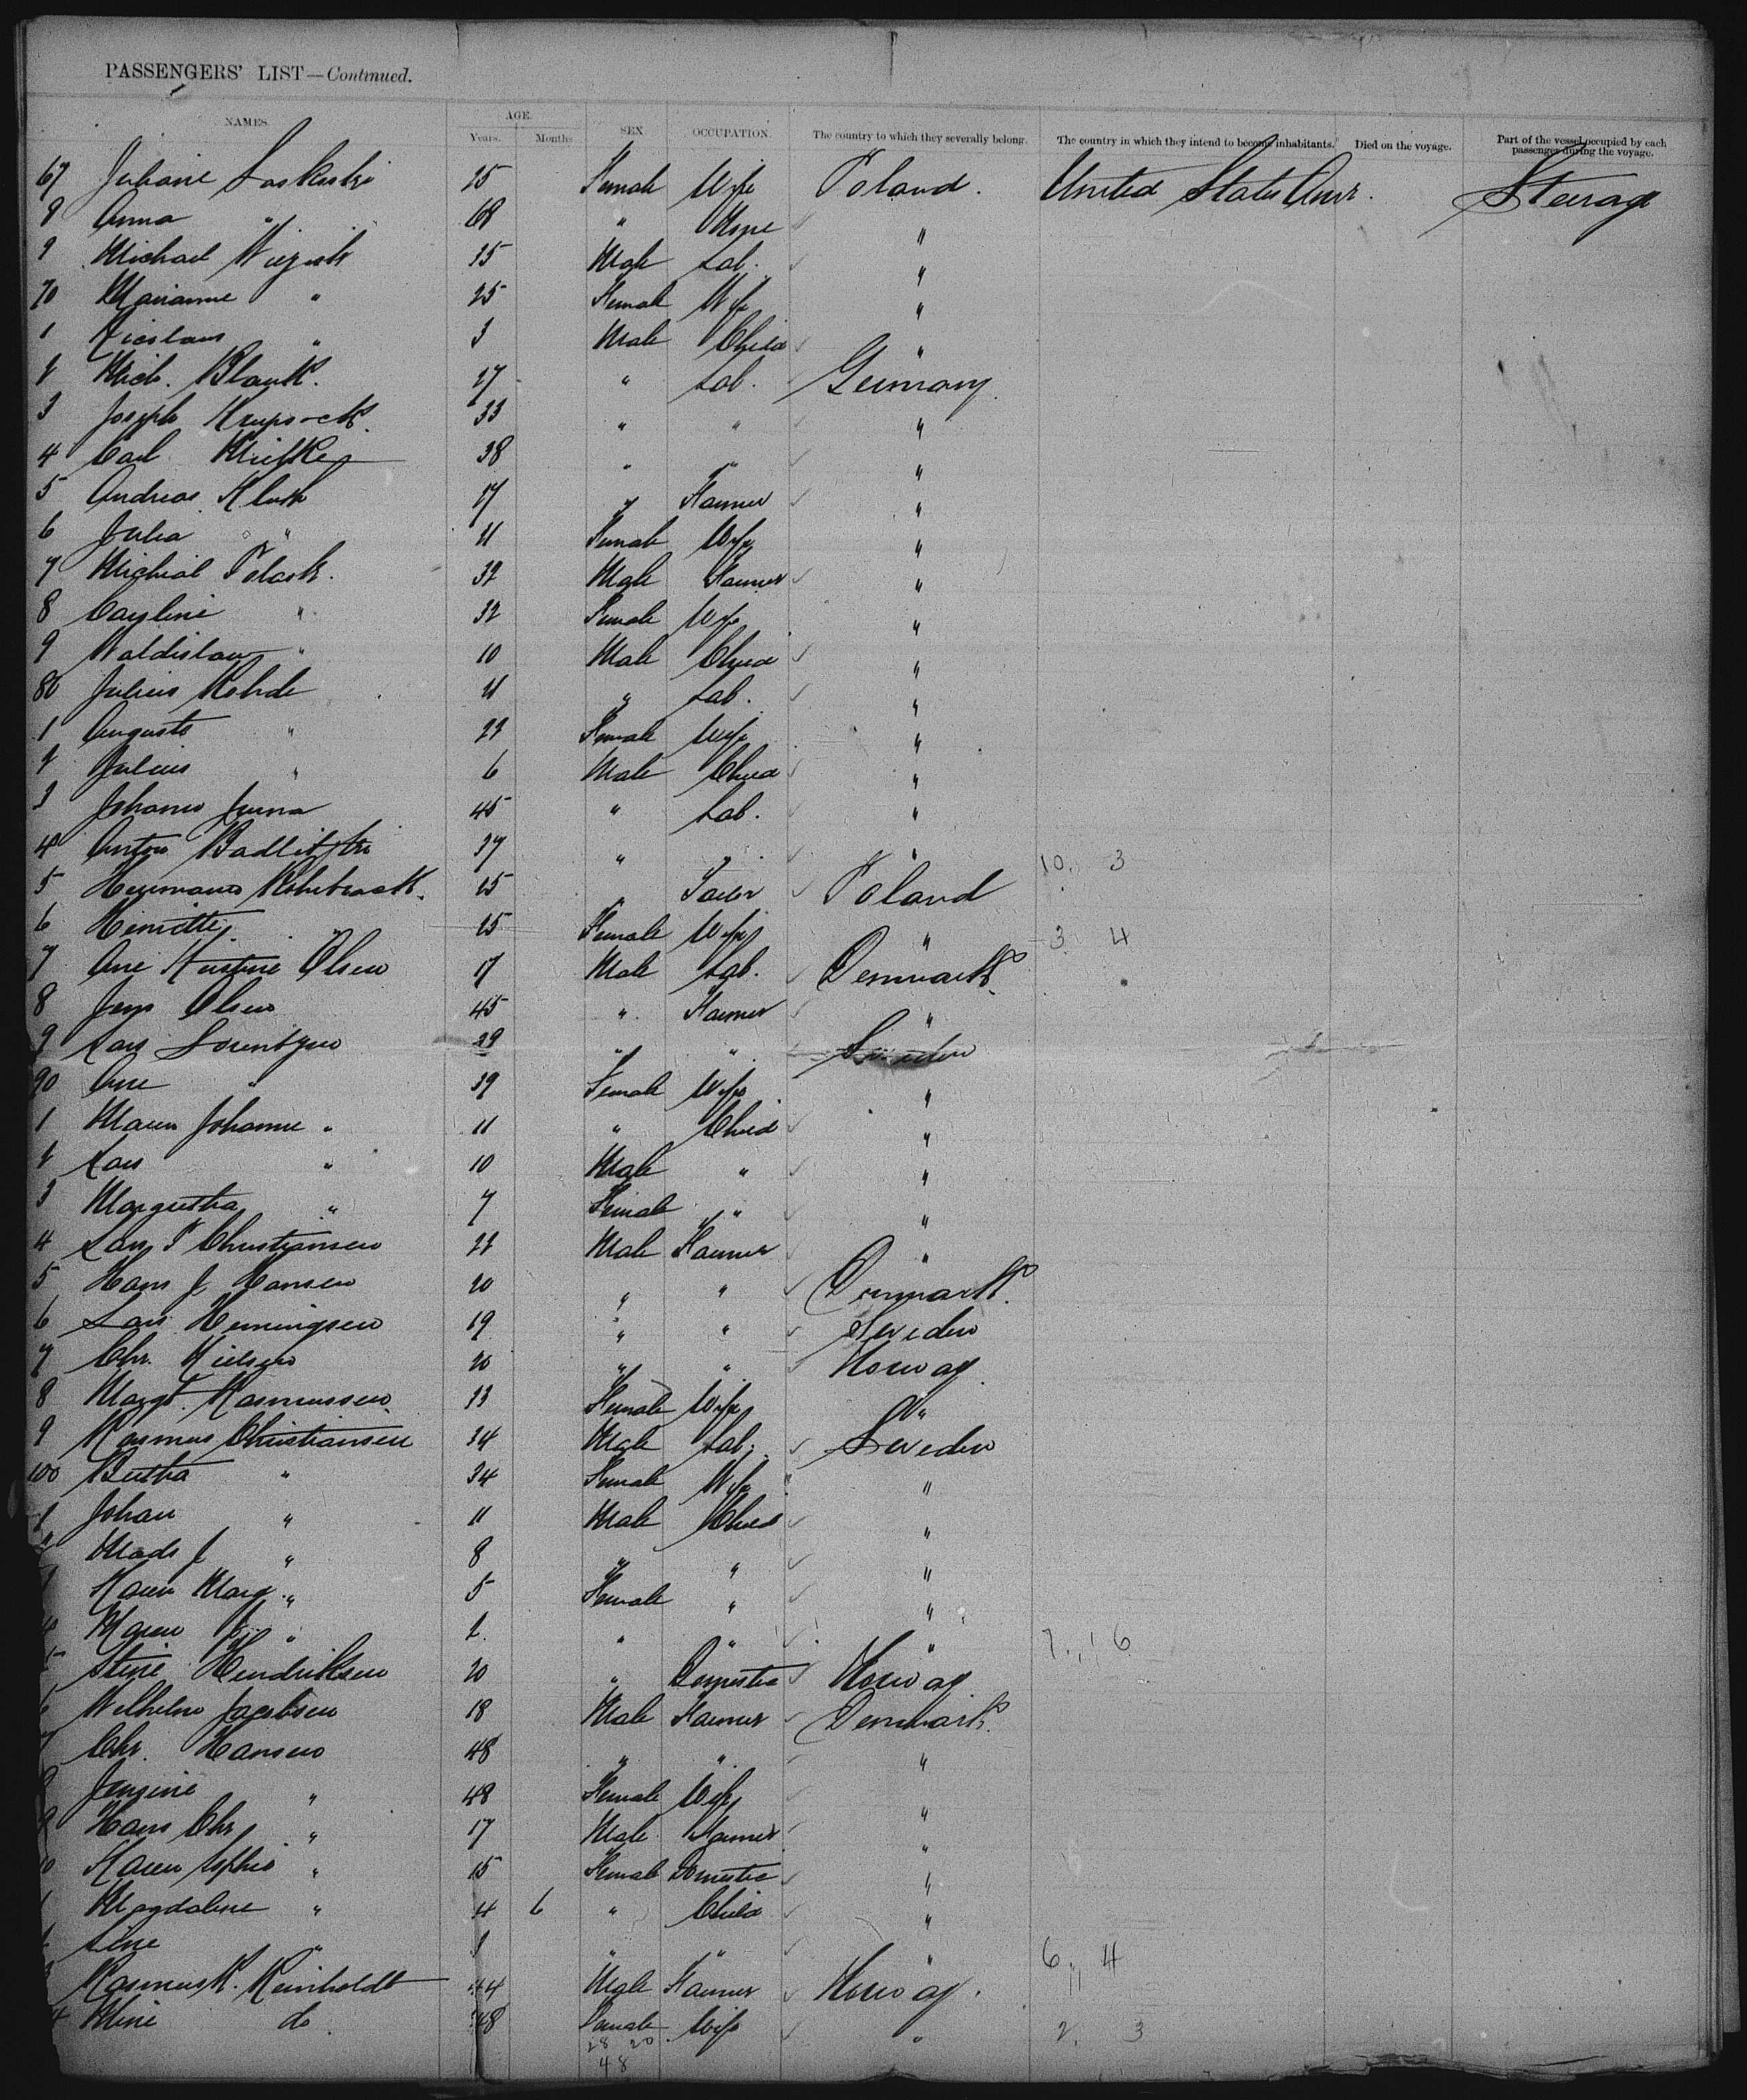 PASSENGERS' LIST—Continued.
NAMES. AGE. Years. Months. SEX. OCCUPATION. The country to which they severally belong. The country in which they intend to become inhabitants. Died on the voyage. Part of the vessel occupied by each passenger during the voyage.
67 Juliane 25 Female Wife Poland. United States Amr. Steerage
8 Anna " 68 " None "
9 Michael 35 Male Lab. "
70 Marianne " 25 Female Wife "
1 " 3 Male Child "
2 Mich. Blank. 27 " Lab. Germany
3 Joseph 33 " " "
4 Carl 38 " " "
5 Andreas 27 " Farmer "
6 Julia " 21 Female Wife "
7 Michial 32 Male Farmer "
8 " 32 Female Wife "
9 Waldislaw " 10 Male Child "
80 Julius Rohde 21 " Lab. "
1 Auguste " 22 Female Wife "
2 Julius " 6 Male Child "
3 45 " Lab. "
4 Anton 37 " " " 10. 3
5 25 " Tailor Poland
6 " 25 Female Wife " 3 4
7 Ane Kirstine Olsen 17 Male Lab. Denmark.
8 Jens Olsen 45 " Farmer "
9 Lars Lorentzen 39 " " Sweden
90 Ane " 39 Female Wife "
1 Maren Johanne " 11 " Child "
2 Lars " 10 Male " "
3 Margretha " 7 Female " "
4 Lars P Christiansen 22 Male Farmer "
5 Hans J Hansen 20 " " Denmark.
6 Lars Henningsen 19 " " Sweden
7 Chr. Nielsen 20 " " Norway
8 Margt. Rasmussen 23 Female Wife "
9 Rasmus Christiansen 34 Male Lab. Sweden
100 Bertha " 34 Female Wife "
1 Johan " 11 Male Child "
Mads J " 8 " " "
Karen Marg. " 5 Female " "
Maren " 2 " " " 7. 6
5 Stine Hendriksen 20 " Domestic Norway
Wilhelm Jacobsen 18 Male Farmer Denmark.
7 Chr. Hansen 48 " " "
Jensine " 48 Female Wife "
9 Hans Chr " 17 Male Farmer "
Karen Sophie " 15 Female Domestic "
1 Magdalene " 4 6 " Child "
Line " " " " 6. 4
Rasmus K. Reinholdt 44 Male Farmer Norway.
4 Mine do 48 Female Wife " 2. 3
28 20
48